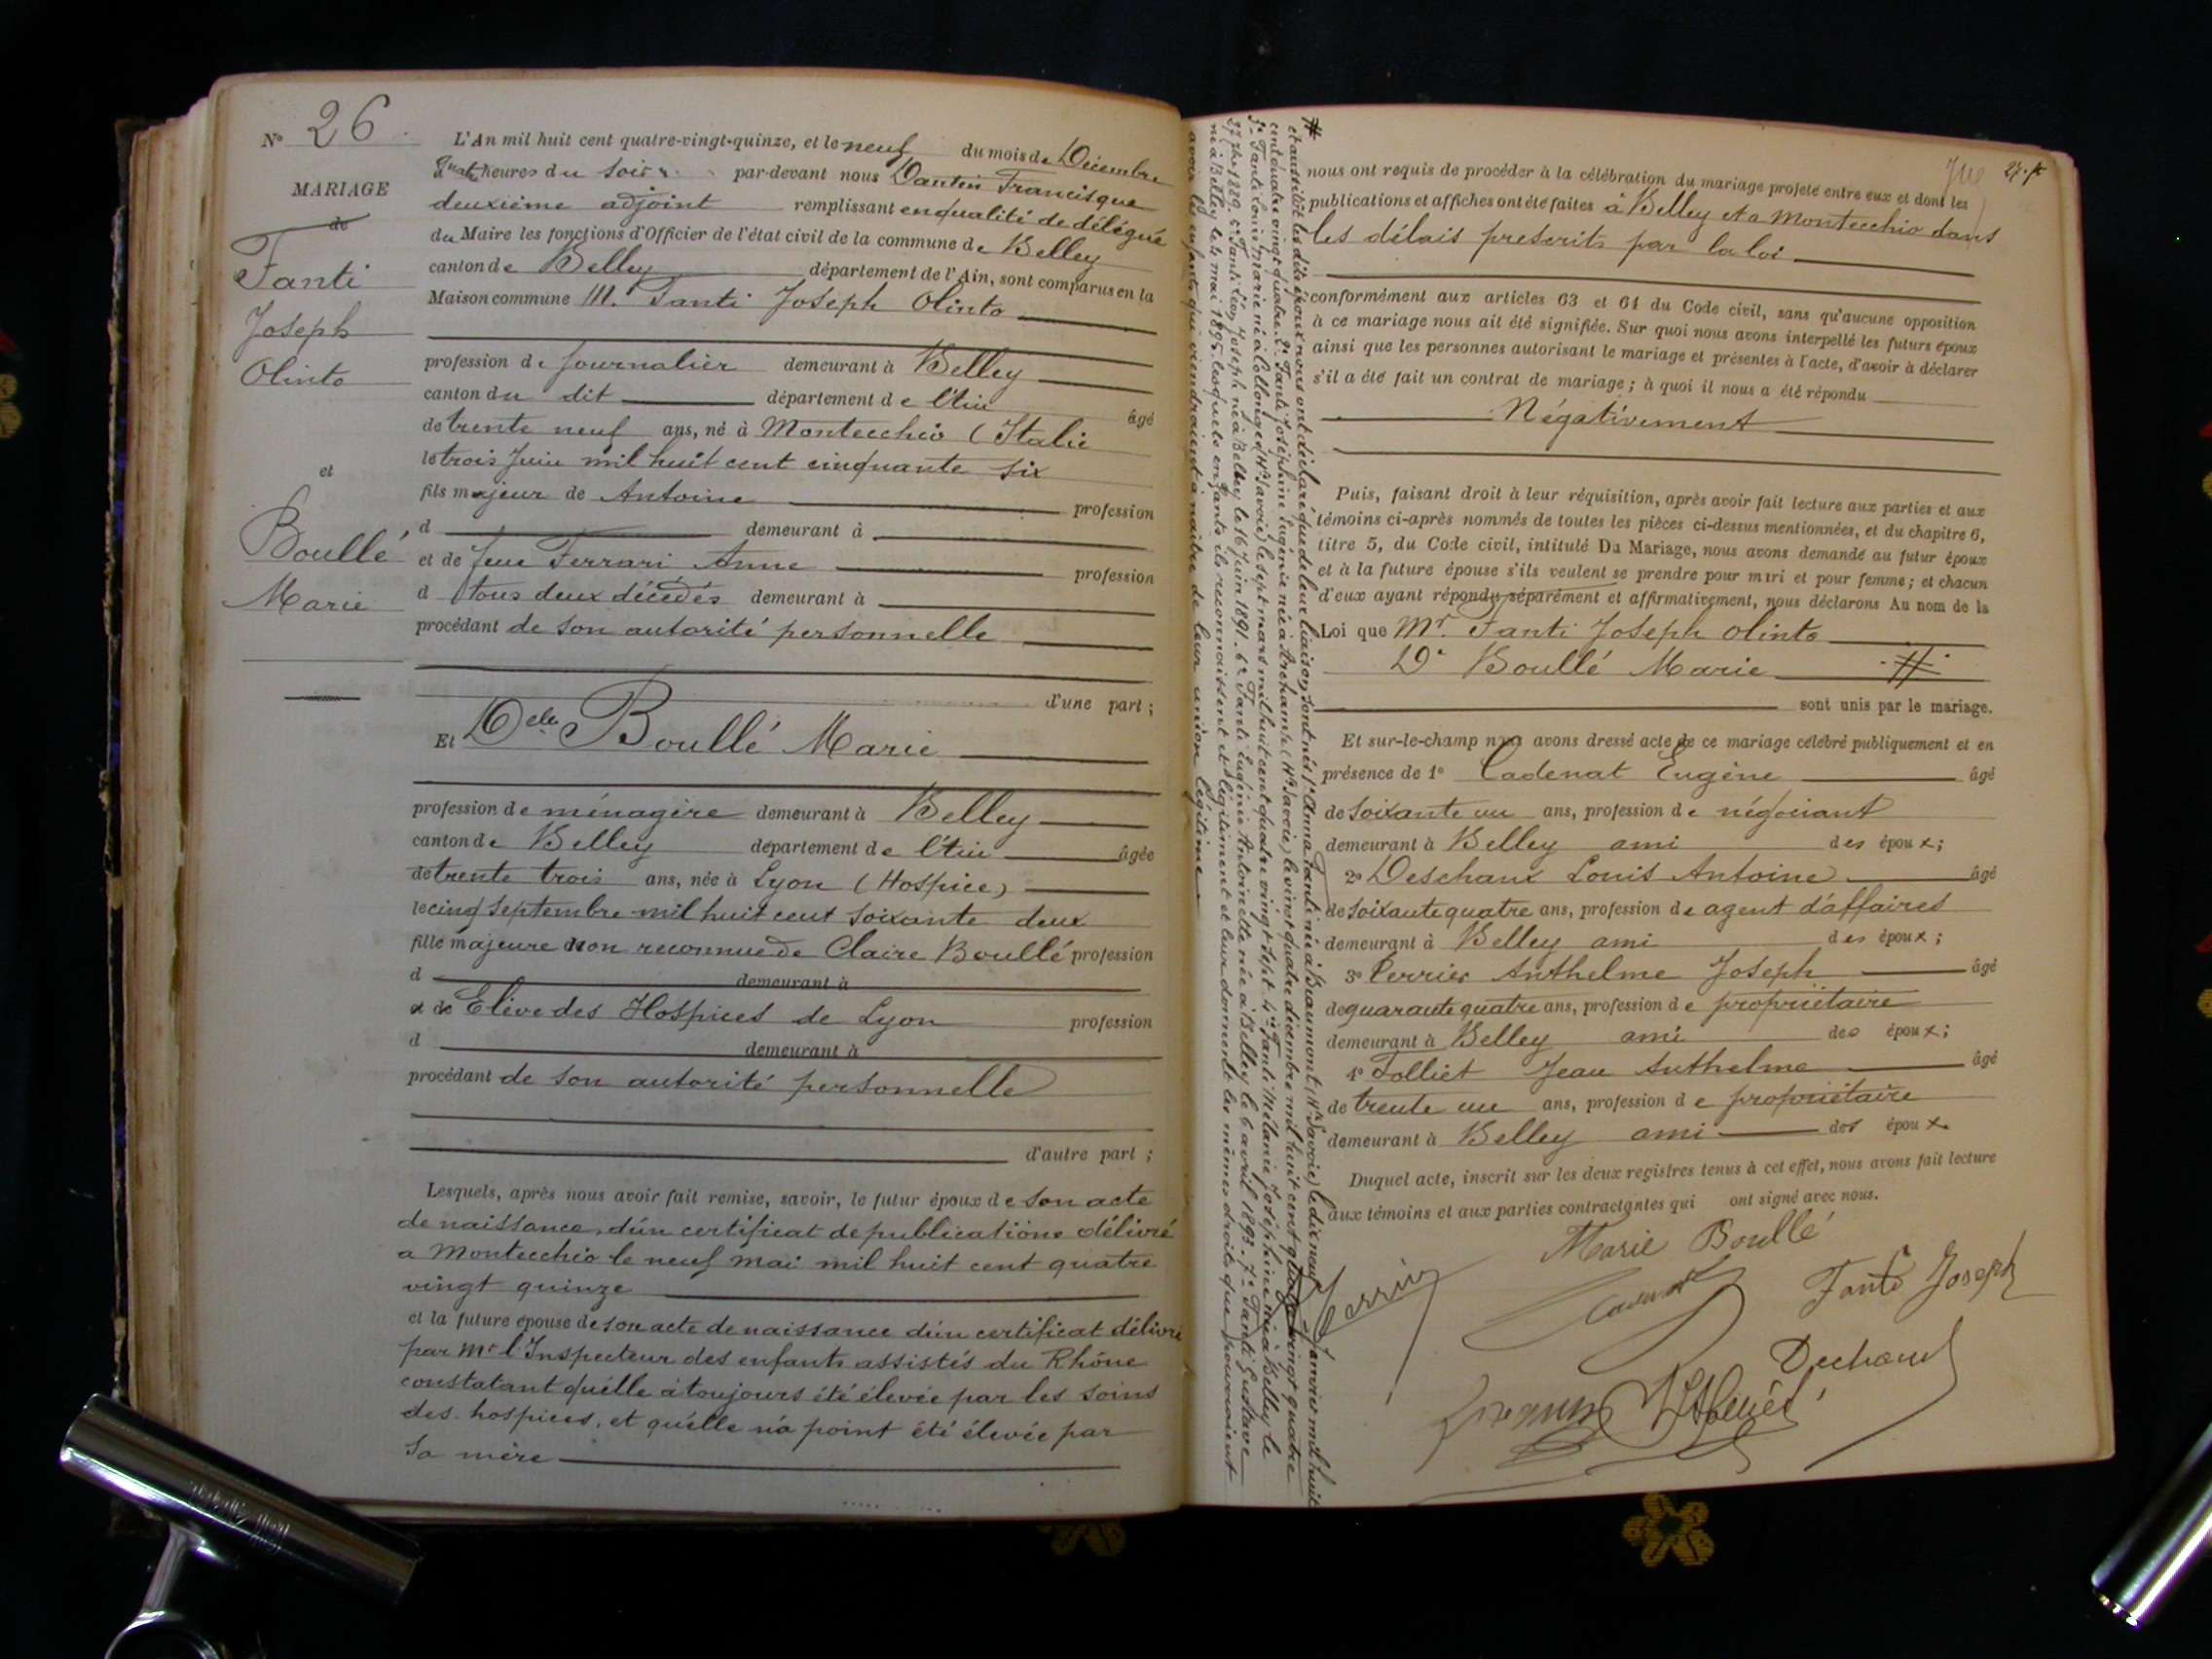 N° 26
MARIAGE
de
Fanti
Joseph
Olinto
et
Boullé
Marie
L'An mil huit cent quatre-vingt-quinze, et le neuf du mois de Décembre
quatre heures du soir par-devant nous Dantin Francisque
deuxième adjoint remplissant en qualité de délégué
du Maire les fonctions d'Officier de l'état civil de la commune de Belley
canton de Belley département de l'Ain, sont comparus en la
Maison commune M. Fanti Joseph Olinto
profession de journalier demeurant à Belley
canton du dit département de l'Ain âgé
de trente neuf ans, né à Montecchio (Italie
le trois Juin mil huit cent cinquante six
fils majeur de Antoine profession
d demeurant à
et de feue Ferrari Anne profession
d tous deux décédés demeurant à
procédant de son autorité personnelle
d'une part ;
Et Delle Boullé Marie
profession de ménagère demeurant à Belley
canton de Belley département de l'Ain âgée
de trente trois ans, née à Lyon (Hospice)
le cinq septembre mil huit cent soixante deux
fille majeure non reconnue de Claire Boullé profession
d demeurant à
et de Elève des Hospices de Lyon profession
d demeurant à
procédant de son autorité personnelle
d'autre part ;
Lesquels, après nous avoir fait remise, savoir, le futur époux de son acte
de naissance, d'un certificat de publications délivré
a Montecchio le neuf mai mil huit cent quatre
vingt quinze
et la future épouse de son acte de naissance d'un certificat délivré
par Mr l'Inspecteur des enfants assistés du Rhône
constatant qu'elle a toujours été élevée par les soins
des hospices, et qu'elle n'a point été élevée par
sa mère
#
et aussitôt les dits époux nous ont déclaré que de leur liaison sont nés 1° Anna Fanti née à Beaumont (Hte Savoie) le dix neuf Janvier mil huit
cent quatre vingt quatre 2° Fanti Joséphine Eugénie née à Archamps (Hte Savoie) le vingt quatre décembre mil huit cent quatre vingt quatre
3° Fanti Louis Marie né à Collonges (Hte Savoie) le sept mars mil huit cent quatre vingt sept. 4° Fanti Mélanie Joséphine née à Belley le
27 1889. 5° Fanti Léon Joseph né à Belley le 16 Juin 1891. 6° Fanti Eugénie Antoinette née à Belley le 6 avril 1893. 7° Fanti Gustave
né à Belley le mai 1895. lesquels enfants ils reconnaissent et légitiment et leur donnent les mêmes droits que pourraient
avoir les enfants qui viendraient à naître de leur union légitime
27.
nous ont requis de procéder à la célébration du mariage projeté entre eux et dont les
publications et affiches ont été faites à Belley et a Montecchio dans
les délais prescrits par la loi
conformément aux articles 63 et 64 du Code civil, sans qu'aucune opposition
à ce mariage nous ait été signifiée. Sur quoi nous avons interpellé les futurs époux
ainsi que les personnes autorisant le mariage et présentes à l'acte, d'avoir à déclarer
s'il a été fait un contrat de mariage ; à quoi il nous a été répondu
Négativement
Puis, faisant droit à leur réquisition, après avoir fait lecture aux parties et aux
témoins ci-après nommés de toutes les pièces ci-dessus mentionnées, et du chapitre 6,
titre 5, du Code civil, intitulé Du Mariage, nous avons demandé au futur époux
et à la future épouse s'ils veulent se prendre pour mari et pour femme ; et chacun
d'eux ayant répondu séparément et affirmativement, nous déclarons Au nom de la
Loi que Mr. Fanti Joseph Olinto
De Boullé Marie #
sont unis par le mariage.
Et sur-le-champ nous avons dressé acte de ce mariage célébré publiquement et en
présence de 1° Cadenat Eugène âgé
de soixante un ans, profession de négociant
demeurant à Belley ami des époux ;
2° Deschaux Louis Antoine âgé
de soixante quatre ans, profession de agent d'affaires
demeurant à Belley ami des époux ;
3° Perrier Anthelme Joseph âgé
de quarante quatre ans, profession de propriétaire
demeurant à Belley ami des époux ;
4° Folliet Jean Anthelme âgé
de trente un ans, profession de propriétaire
demeurant à Belley ami des époux
Duquel acte, inscrit sur les deux registres tenus à cet effet, nous avons fait lecture
aux témoins et aux parties contractantes qui ont signé avec nous.
Marie Boullé
Fanti Joseph